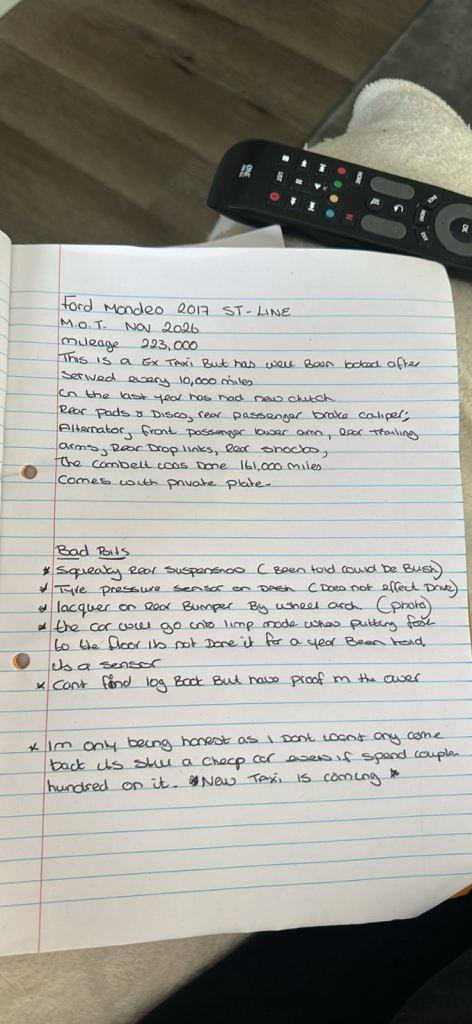 Ford Mondeo 2017 ST-LINE
M.O.T. Nov 2026
mileage 223,000
This is a Ex Taxi But has well Been looked after
serviced every 10,000 miles
in the last year has had new clutch
Rear pads & Discs, rear passenger brake caliper,
Alternator, front passenger lower arm, Rear Trailing
arms, Rear Drop links, Rear shocks,
The cambelt was Done 161,000 miles
Comes with private plate-
Bad Bits
* Squeaky Rear suspension (Been told could be Bush)
* Tyre pressure sensor on Dash (Does not effect Drive)
* lacquer on Rear Bumper By wheel arch. (photo)
* the car will go into limp mode when putting foot
to the floor its not Done it for a year Been told
its a sensor
* Cant find log Book But have proof im the owner
* Im only being honest as I Dont want any come
back its still a cheap car even if spend couple
hundred on it. * New Taxi is coming *
ONE
EXIT
HOME
OK
N